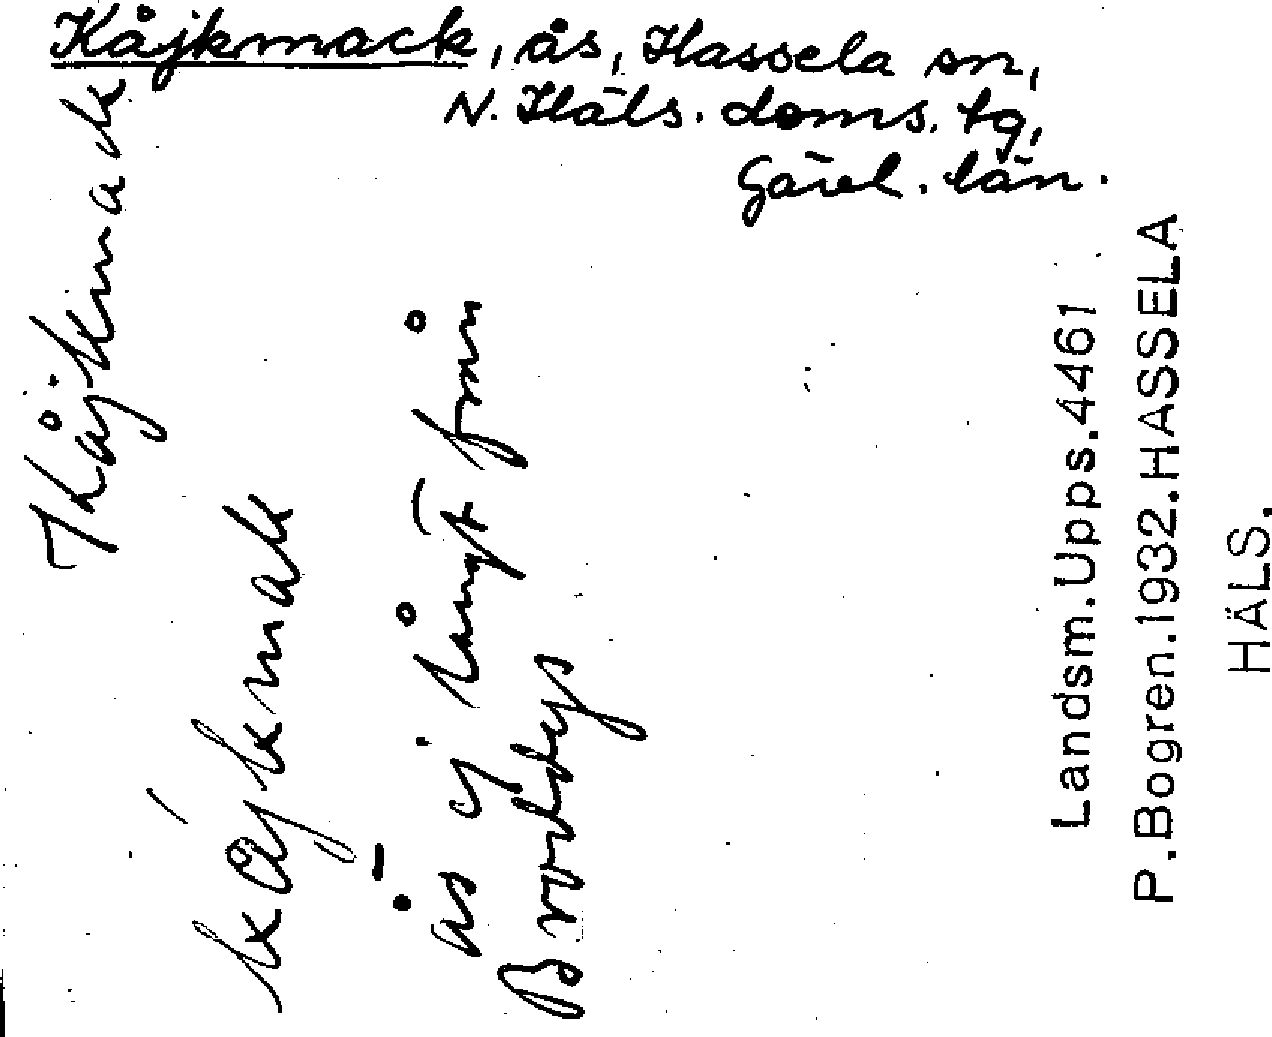 Kåjkmack, ås, Hassela sn,
N. Häls. doms. tg,
Gävl. län.
Kåjkmack
kåjkmak
ås ej långt från
Landsm.Upps.4461
P.Bogren.1932.HASSELA
HÄLS.